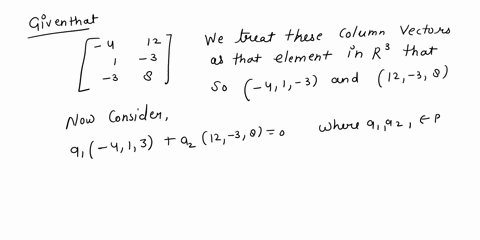 Given that
[-4 12
1 -3
-3 8]
We treat these column vectors
as that element in R³ that
So (-4, 1, -3) and (12, -3, 8)
Now Consider,
a₁(-4, 1, 3) + a₂(12, -3, 8) = 0 where a₁, a₂, ∈ P